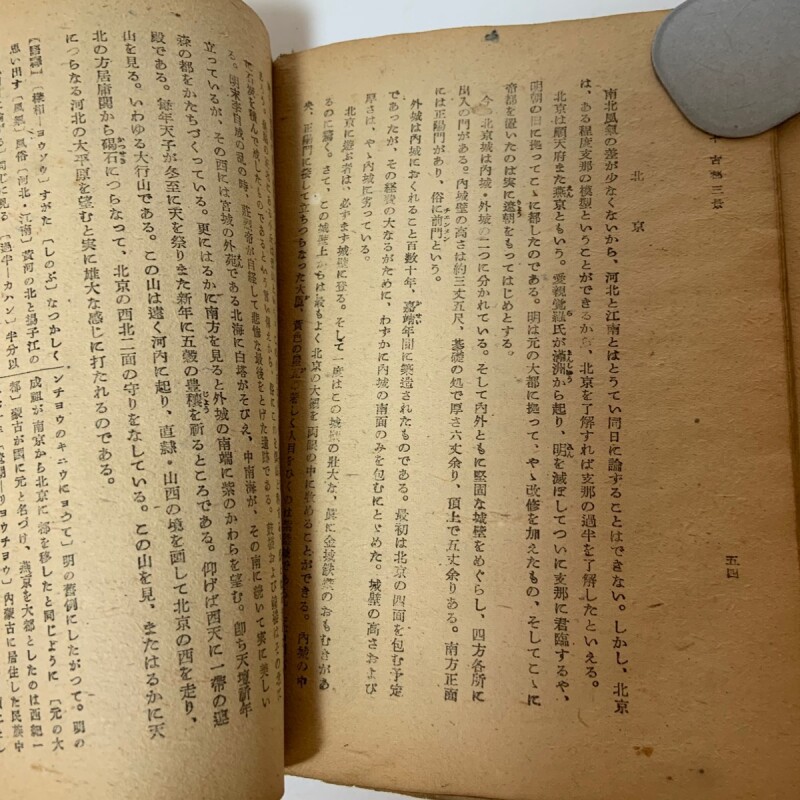 五四
北京
南北風氣の差が少なくないから、河北と江南とはとうてい同日に論ずることはできない。しかし、北京
は、ある程度支那の模型ということができるから、北京を了解すれば支那の過半を了解したといえる。
北京は順天府また燕京ともいう。愛親覚羅氏が満洲から起り、明を滅ぼしてついに支那に君臨するや、
明朝の旧に拠ってこゝに都したのである。明は元の大都に拠って、やゝ改修を加えたもの、そしてこゝに
帝都を置いたのは実に遼朝をもってはじめとする。
今の北京城は内城・外城の二つに分かれている。そして内外ともに堅固な城壁をめぐらし、四方各所に
出入の門がある。内城壁の高さは約三丈五尺、基礎の処で厚さ六丈余り、頂上で五丈余りある。南方正面
には正陽門があり、俗に前門という。
外城は内城におくれること百数十年、嘉靖年間に築造されたものである。最初は北京の四面を包む予定
であったが、その経費の大なるがために、わずかに内城の南面のみを包むにとゞめた。城壁の高さおよび
厚さは、やゝ内城に劣っている。
北京に遊ぶ者は、必ずまず城壁に登る。そして一度はこの城壁の壯大な、眞に金城鉄壁のおもむきがあ
るのに驚く。さて、この城壁上からは最もよく北京の大観を両眼の中に收めることができる。内城の中
央、正陽門に発して立ちつらなった大
る。明末李自成の乱の時、
自経して悲惨な最後をとげた遺跡である。
立っているが、その西には宮城の外苑である北海に白塔がそびえ、中南海が、その南に続いて実に美しい
森の都をかたちづくっている。更にはるかに南方を見ると外城の南端に紫のかわらを望む。卽ち天壇祈年
殿である。毎年天子が冬至に天を祭りまた新年に五穀の豊穰を祈るところである。仰げば西天に一帯の連
山を見る。いわゆる大行山である。この山は遠く河内に起り、直隷・山西の境を画して北京の西を走り、
北の方居庸関から碣石につらなって、北京の西北二面の守りをなしている。この山を見、またはるかに天
につらなる河北の大平原を望むと実に雄大な感じに打たれるのである。
〔語釋〕〔樣相―ヨウソウ〕すがた〔しのぶ〕なつかしく
思い出す〔風氣〕風俗〔河北・江南〕黄河の北と揚子江の
〔過半―カハン〕半分以
ンチヨウのキユウにヨって〕明の舊例にしたがつて。明の
成祖が南京から北京に都を移したと同じように〔元の大
都〕蒙古が國に元と名づけ、燕京を大都としたのは西紀一
リヨウチヨウ〕内蒙古に居住した民族中